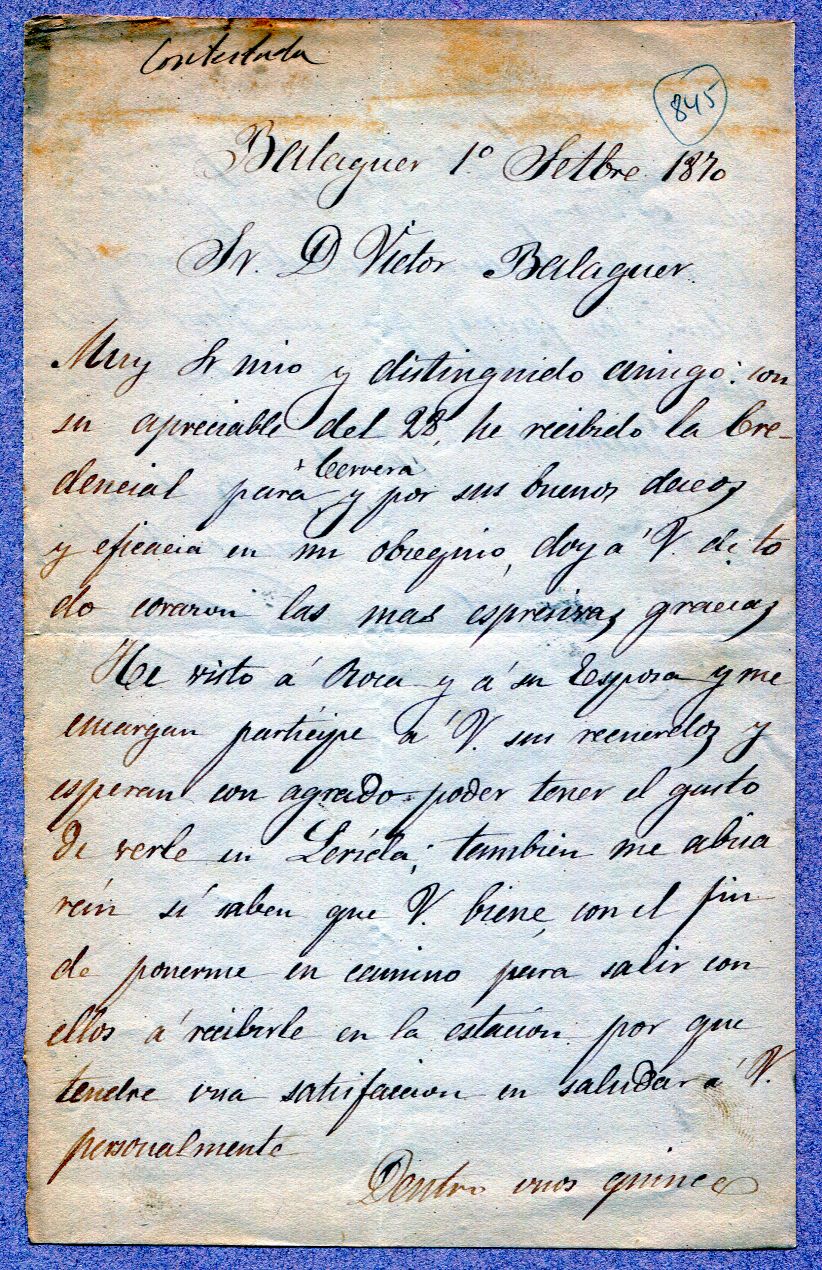 Contestada
845
Balaguer 1.º Setbre 1870
Sr. D Victor Balaguer.
Muy Sr mio y distinguido amigo: con
su apreciable del 28, he recibido la Cre-
dencial para Cervera y por sus buenos deceos
y eficacia en mi obsequio, doy á V. de to
do corazon las mas espresivas gracias
He visto á Roca y á su Esposa y me
encargan participe á V. sus recuerdos y
esperan con agrado poder tener el gusto
de verle en Lerida; tambien me abisa
rán si saben que V. biene, con el fin
de ponerme en camino para salir con
ellos á recibirle en la estacion por que
tendre una satisfaccion en saludar á V.
personalmente
Dentro unos quince